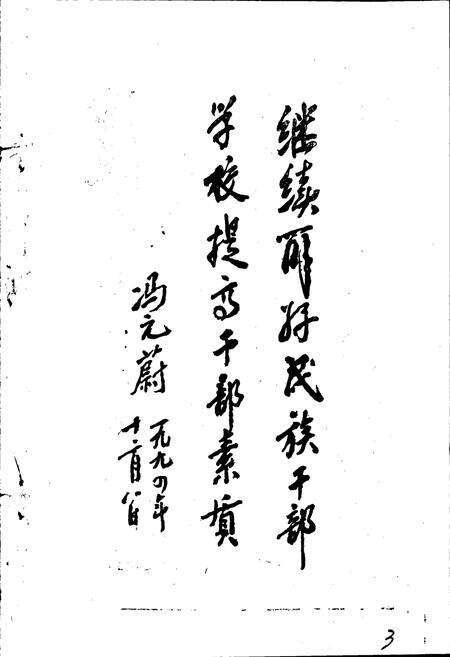 继续办好民族干部
学校提高干部素质
冯元蔚
一九九四年
十二月八日
3